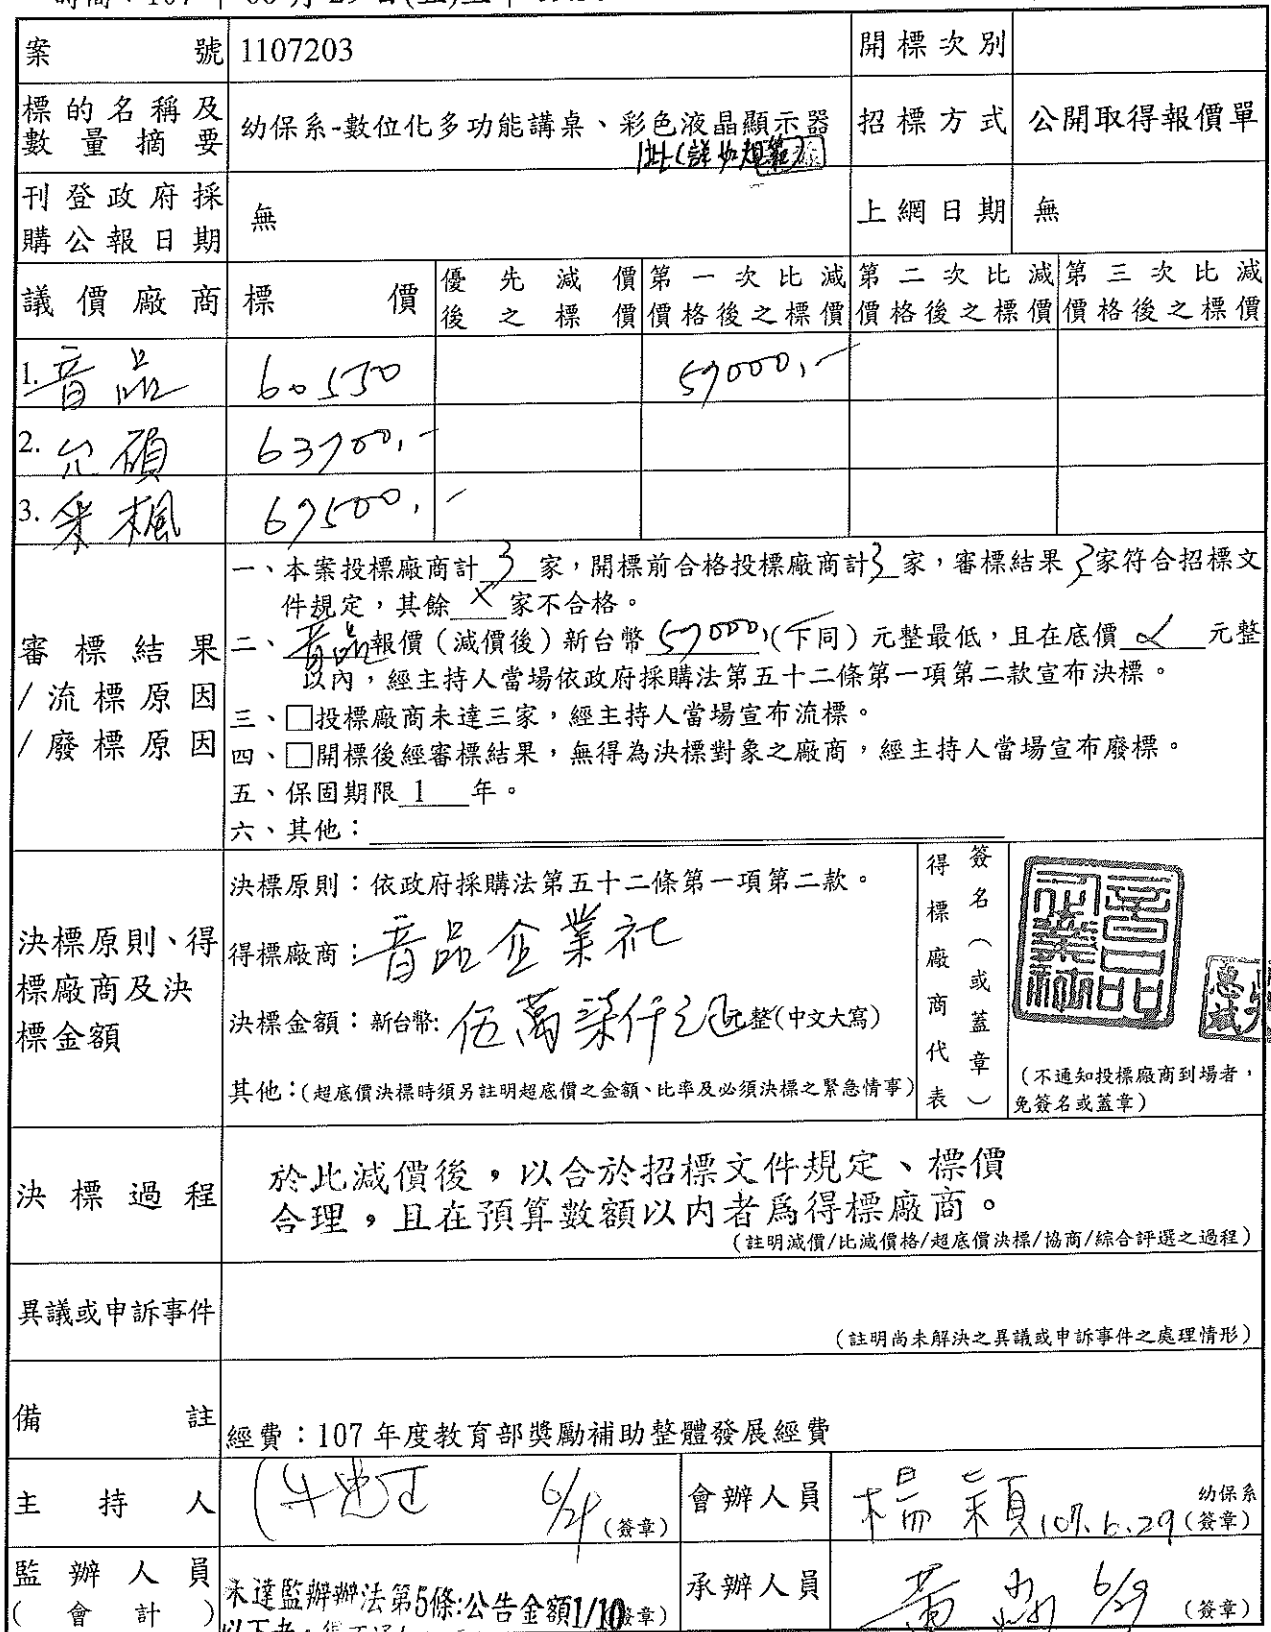 案號 1107203 開標次別
標的名稱及數量摘要 幼保系-數位化多功能講桌、彩色液晶顯示器 招標方式 公開取得報價單
1批(詳如規範)
刊登政府採購公報日期 無 上網日期 無
議價廠商 標價 優先減價後之標價 第一次比減價格後之標價 第二次比減價格後之標價 第三次比減價格後之標價
1. 音品 60550 57000,-
2. 允碩 63700,-
3. 采楓 67500,-
審標結果/流標原因/廢標原因
一、本案投標廠商計 3 家,開標前合格投標廠商計 3 家,審標結果 3 家符合招標文
件規定,其餘 X 家不合格。
二、音品報價(減價後)新台幣 57000,(下同)元整最低,且在底價 元整
以內,經主持人當場依政府採購法第五十二條第一項第二款宣布決標。
三、□投標廠商未達三家,經主持人當場宣布流標。
四、□開標後經審標結果,無得為決標對象之廠商,經主持人當場宣布廢標。
五、保固期限 1 年。
六、其他:
決標原則、得標廠商及決標金額
決標原則:依政府採購法第五十二條第一項第二款。
得標廠商:音品企業社
決標金額:新台幣:伍萬柒仟元整(中文大寫)
其他:(超底價決標時須另註明超底價之金額、比率及必須決標之緊急情事)
得標廠商代表簽名(或蓋章)
(不通知投標廠商到場者,
免簽名或蓋章)
決標過程
於比減價後,以合於招標文件規定、標價
合理,且在預算數額以內者為得標廠商。
(註明減價/比減價格/超底價決標/協商/綜合評選之過程)
異議或申訴事件
(註明尚未解決之異議或申訴事件之處理情形)
備註 經費:107 年度教育部獎勵補助整體發展經費
主持人 (簽章) 會辦人員 107.6.29 幼保系(簽章)
監辦人員(會計) 未達監辦辦法第5條:公告金額1/10 (簽章) 承辦人員 6/29 (簽章)